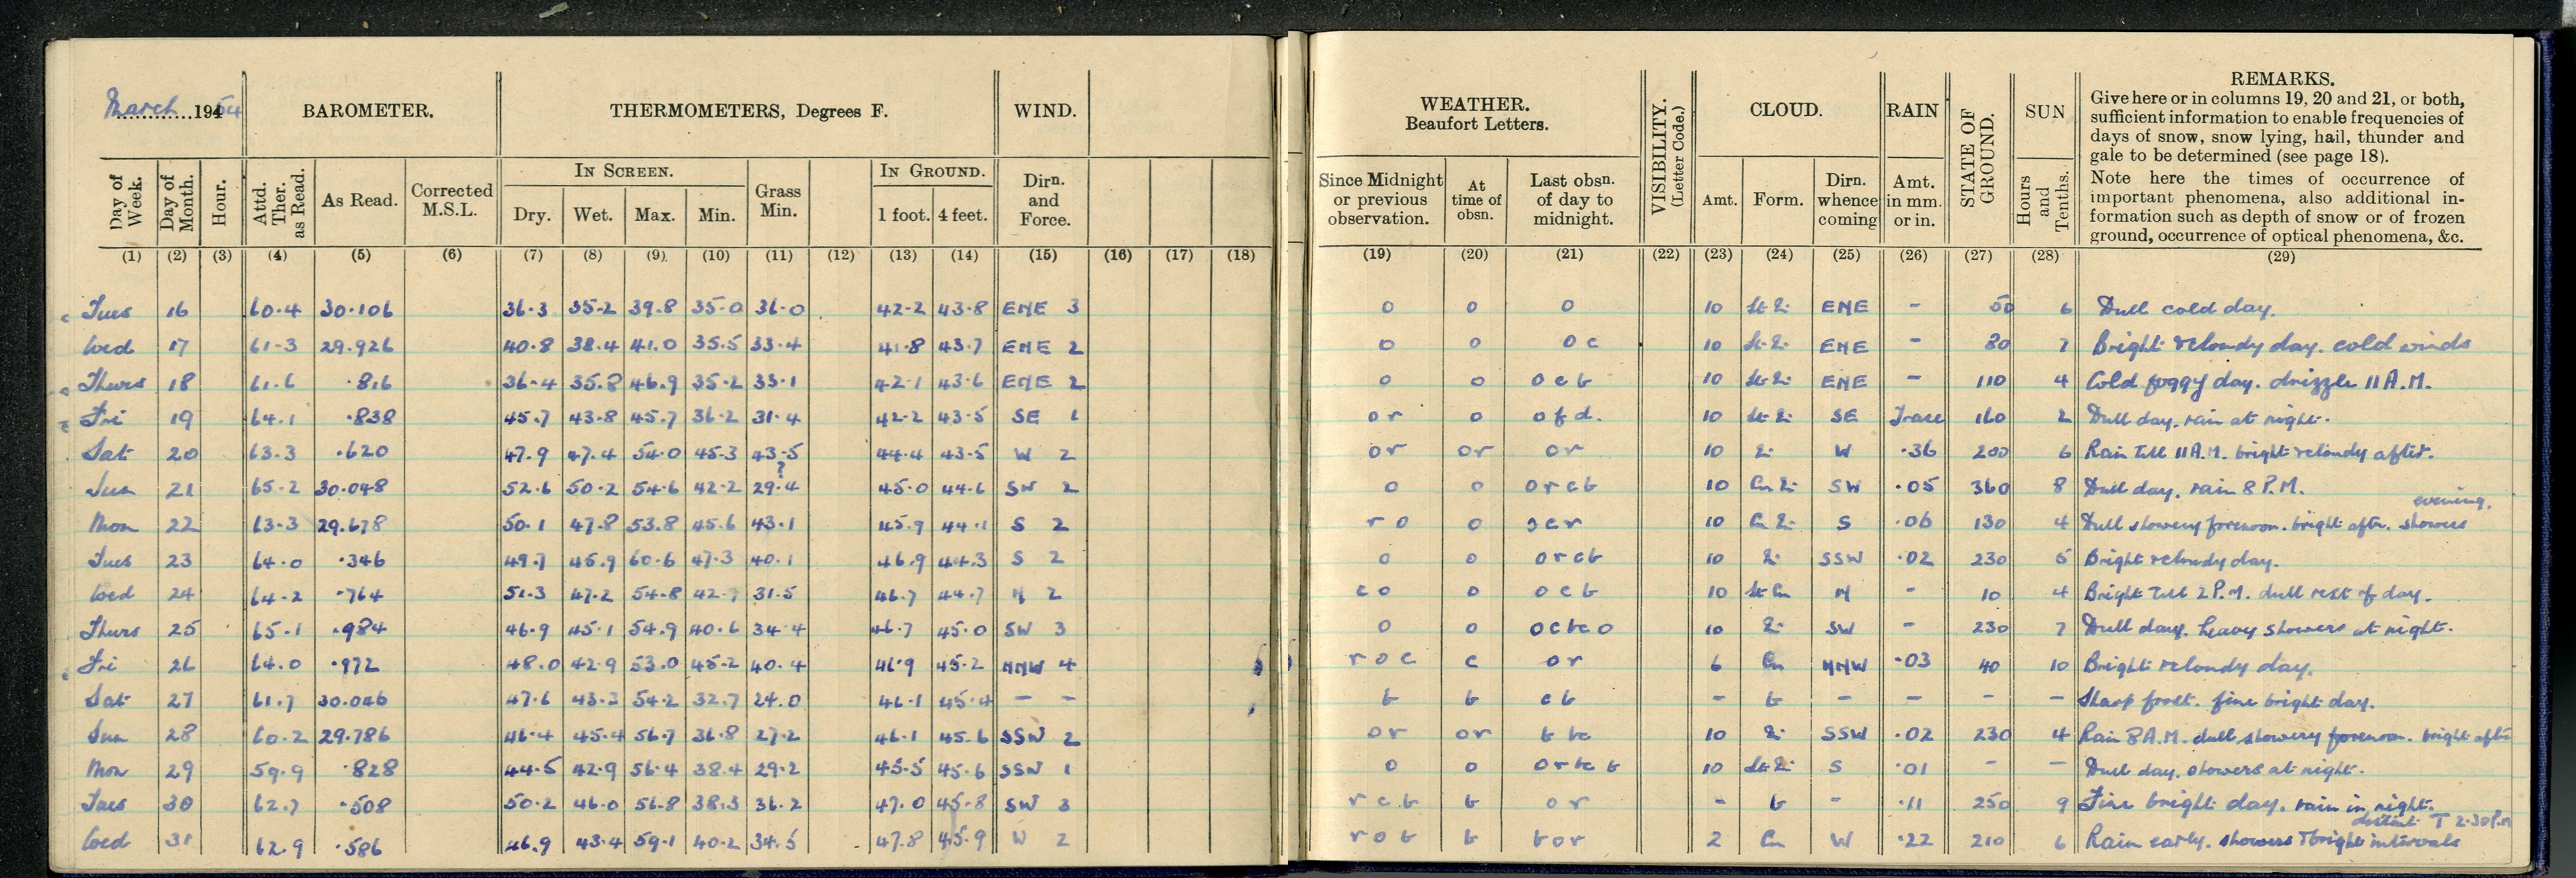 March 1954 BAROMETER. THERMOMETERS, Degrees F. WIND. WEATHER. Beaufort Letters. VISIBILITY. (Letter Code.) CLOUD. RAIN STATE OF GROUND. SUN REMARKS.
Give here or in columns 19, 20 and 21, or both,
sufficient information to enable frequencies of
days of snow, snow lying, hail, thunder and
gale to be determined (see page 18).
Note here the times of occurrence of
important phenomena, also additional in-
formation such as depth of snow or of frozen
ground, occurrence of optical phenomena, &c.
IN SCREEN. IN GROUND.
Day of Week. Day of Month. Hour. Attd. Ther. as Read. As Read. Corrected M.S.L. Dry. Wet. Max. Min. Grass Min. 1 foot. 4 feet. Dirn. and Force. Since Midnight or previous observation. At time of obsn. Last obsn. of day to midnight. Amt. Form. Dirn. whence coming Amt. in mm. or in. Hours and Tenths.
(1) (2) (3) (4) (5) (6) (7) (8) (9) (10) (11) (12) (13) (14) (15) (16) (17) (18) (19) (20) (21) (22) (23) (24) (25) (26) (27) (28) (29)
Tues 16 60.4 30.106 36.3 35.2 39.8 35.0 36.0 42.2 43.8 ENE 3 o o o 10 ENE - 50 6 Dull cold day.
Wed 17 61.3 29.926 40.8 38.4 41.0 35.5 33.4 41.8 43.7 ENE 2 o o o c 10 ENE - 80 7 Bright & cloudy day. cold winds
Thurs 18 61.6 .816 36.4 35.8 46.9 35.2 33.1 42.1 43.6 ENE 2 o o o c b 10 ENE - 110 4 Cold foggy day. drizzle 11 A.M.
Fri 19 64.1 .838 45.7 43.8 45.7 36.2 31.4 42.2 43.5 SE 1 o r o o f d. 10 SE Trace 160 2 Dull day. rain at night.
Sat 20 63.3 .620 47.9 47.4 54.0 45.3 43.5 44.4 43.5 W 2 o r o r o r 10 W .36 200 6 Rain till 11 A.M. bright & cloudy after.
Sun 21 65.2 30.048 52.6 50.2 54.6 42.2 29.4 ? 45.0 44.6 SW 2 o o o r c b 10 SW .05 360 8 Dull day. rain 8 P.M.
Mon 22 63.3 29.678 50.1 47.8 53.8 45.6 43.1 45.9 44.1 S 2 r o o o c r 10 S .06 130 4 Dull showery forenoon. bright after. showers evening.
Tues 23 64.0 .346 49.7 45.9 60.6 47.3 40.1 46.9 44.3 S 2 o o o r c b 10 SSW .02 230 5 Bright & cloudy day.
Wed 24 64.2 .764 51.3 47.2 54.8 42.7 31.5 46.7 44.7 N 2 c o o o c b 10 St Cu N - 10 4 Bright till 2 P.M. dull rest of day.
Thurs 25 65.1 .984 46.9 45.1 54.9 40.6 34.4 46.7 45.0 SW 3 o o o c b c o 10 SW - 230 7 Dull day. heavy showers at night.
Fri 26 64.0 .972 48.0 42.9 53.0 45.2 40.4 46.9 45.2 NNW 4 r o c c o r 6 Cu NNW .03 40 10 Bright & cloudy day.
Sat 27 61.7 30.046 47.6 43.3 54.2 32.7 24.0 46.1 45.4 - - b b c b - b - - - - Sharp frost. fine bright day.
Sun 28 60.2 29.786 46.4 45.4 56.7 36.8 27.2 46.1 45.6 SSW 2 o r o r b b c 10 SSW .02 230 4 Rain 8 A.M. dull showery forenoon. bright after
Mon 29 59.9 .828 44.5 42.9 56.4 38.4 29.2 45.5 45.6 SSW 1 o o o r b c b 10 S .01 - - Dull day. showers at night.
Tues 30 62.7 .508 50.2 46.0 56.8 38.3 36.2 47.0 45.8 SW 3 r c b b o r - b - .11 250 9 Fine bright day. rain in night.
Wed 31 62.9 .586 46.9 43.4 59.1 40.2 34.5 47.8 45.9 W 2 r o b b b o r 2 Cu W .22 210 6 Rain early. showers & bright intervals distant T 2.30 P.M